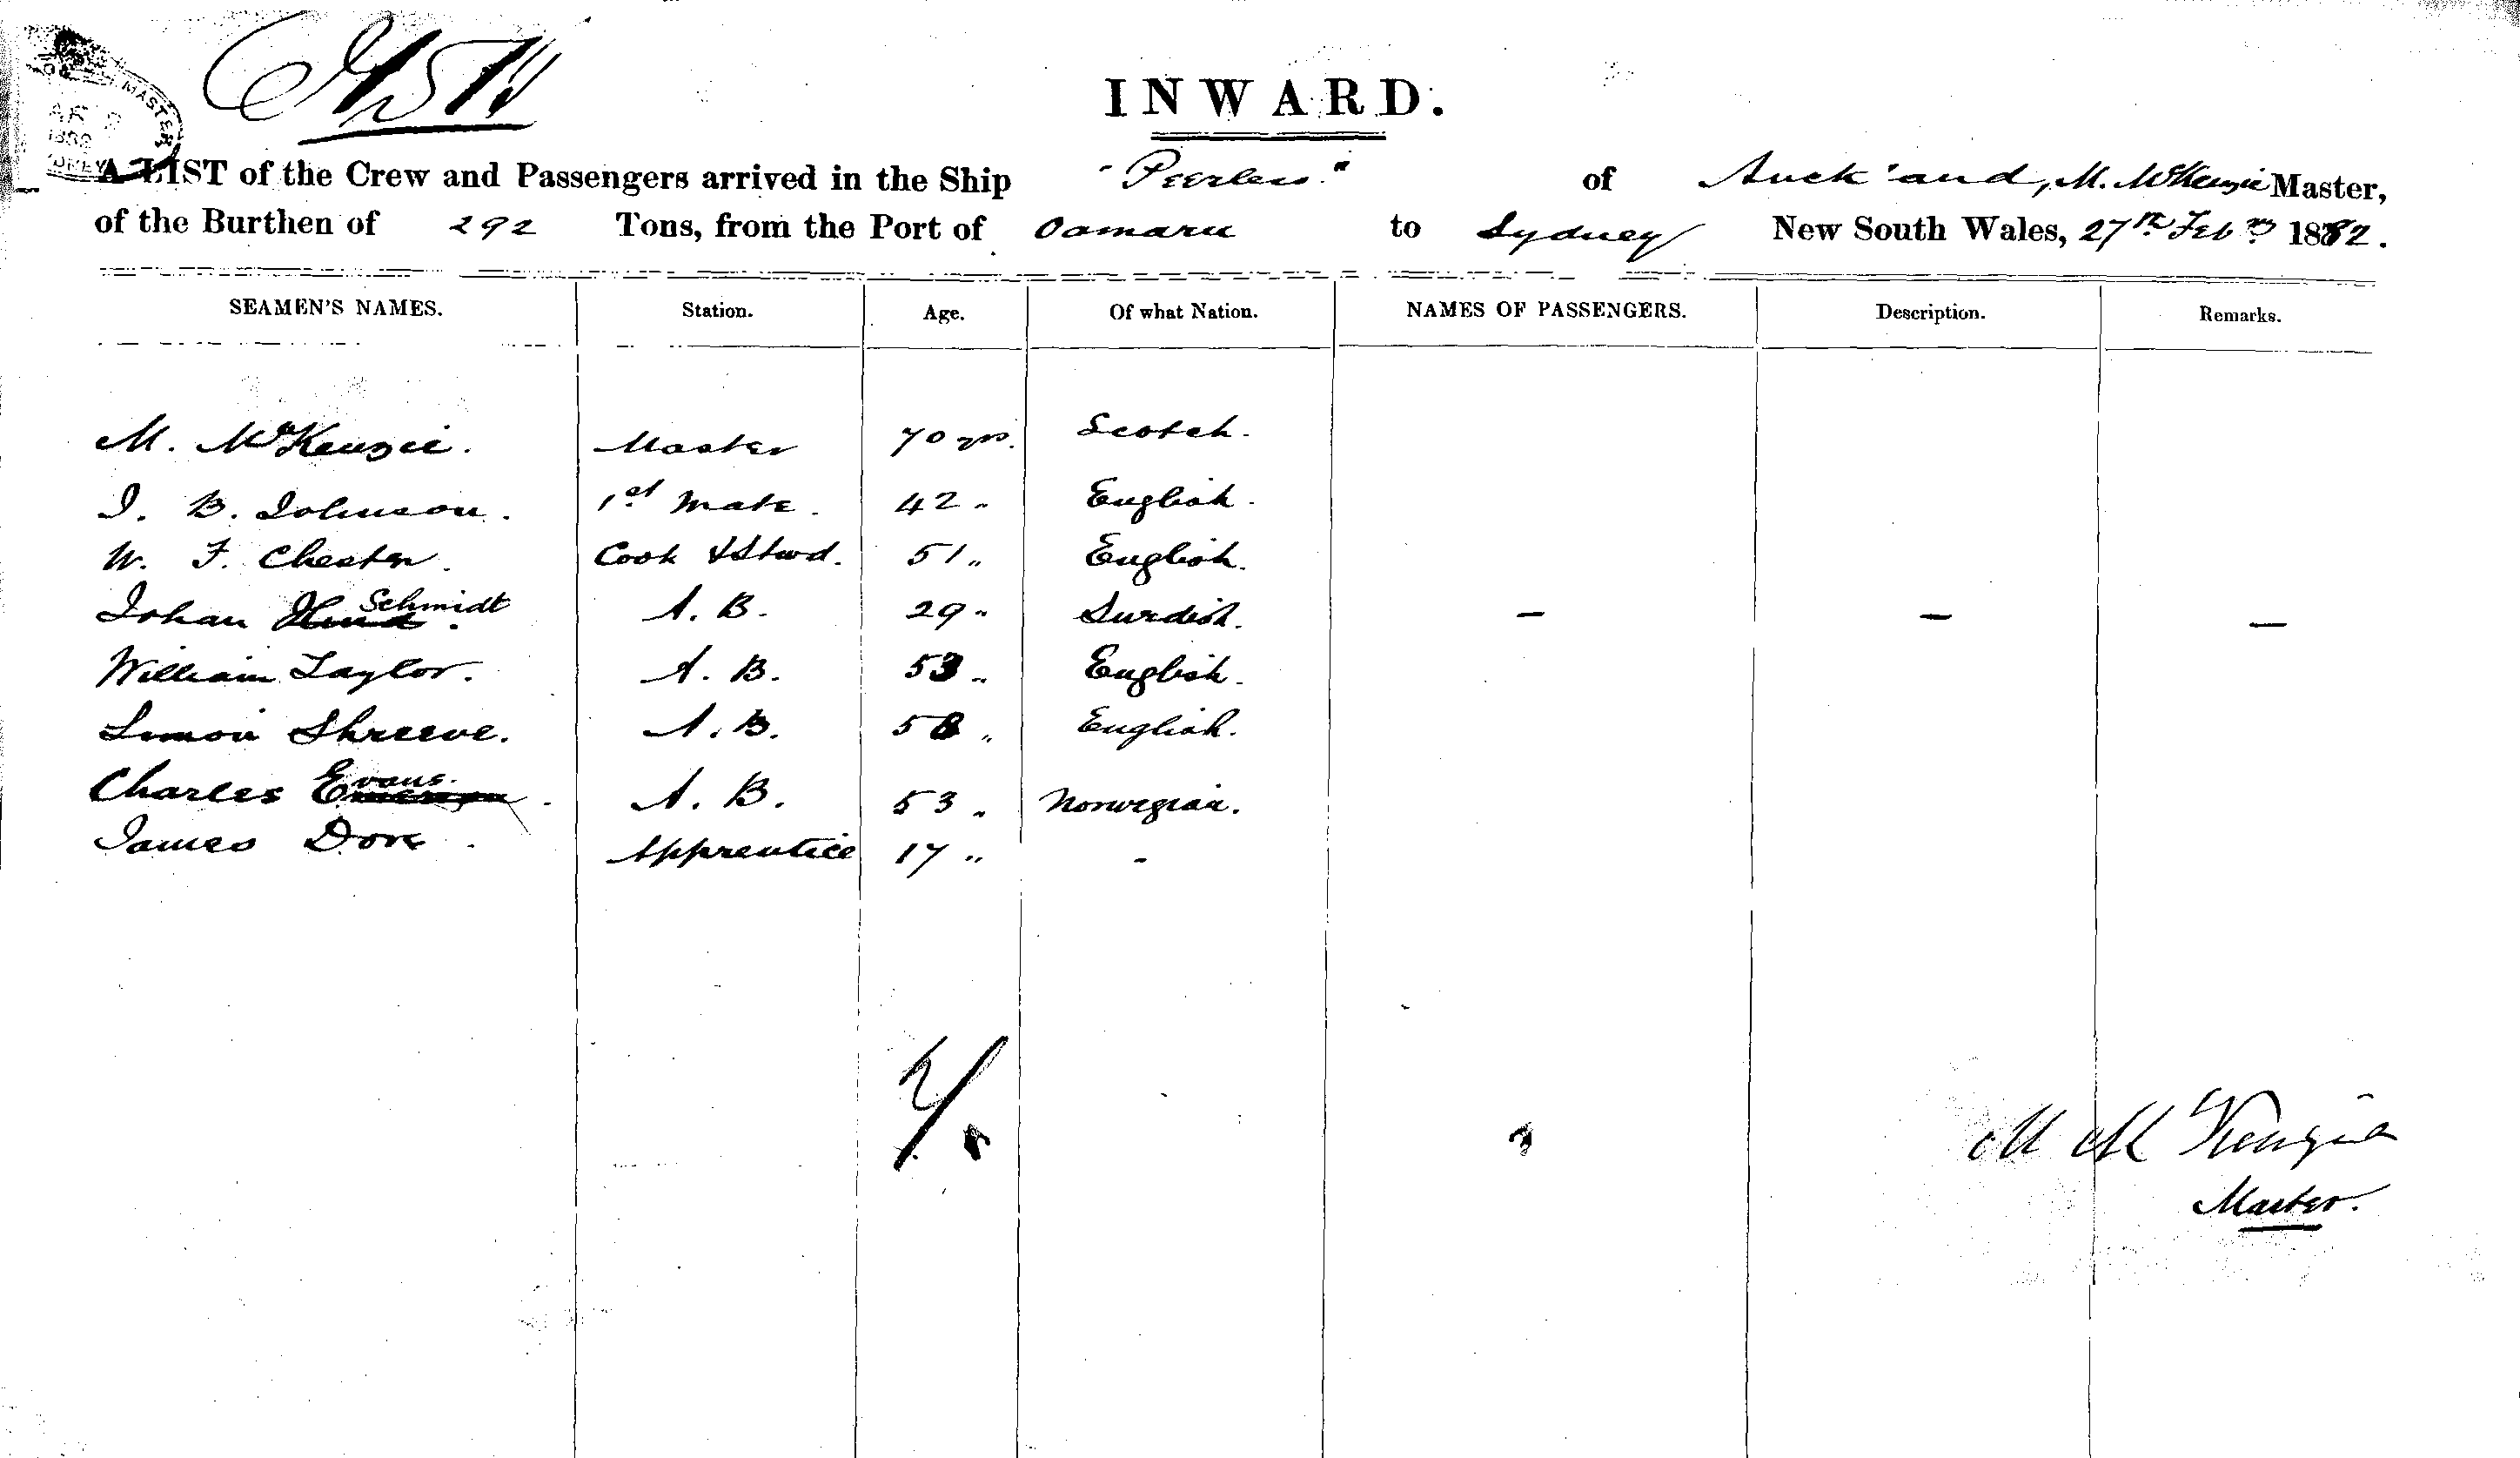 INWARD.
A LIST of the Crew and Passengers arrived in the Ship "Peerless" of Auckland, M. McKenzie Master,
of the Burthen of 292 Tons, from the Port of Oamaru to Sydney New South Wales, 27th Feby 1882.
SEAMEN'S NAMES. Station. Age. Of what Nation. NAMES OF PASSENGERS. Description. Remarks.
M. McKenzie. Master 70 yrs. Scotch.
J. B. Johnson. 1st Mate. 42 " English.
W. F. Chester. Cook & Stwd. 51 " English.
Johan Schmidt A. B. 29 " Swedish. — — —
William Taylor. A. B. 53 " English.
Simon Shreeve. A. B. 58 " English.
Charles Evans. A. B. 53 " Norwegian.
James Dove. Apprentice 17 " -
M McKenzie
Master.